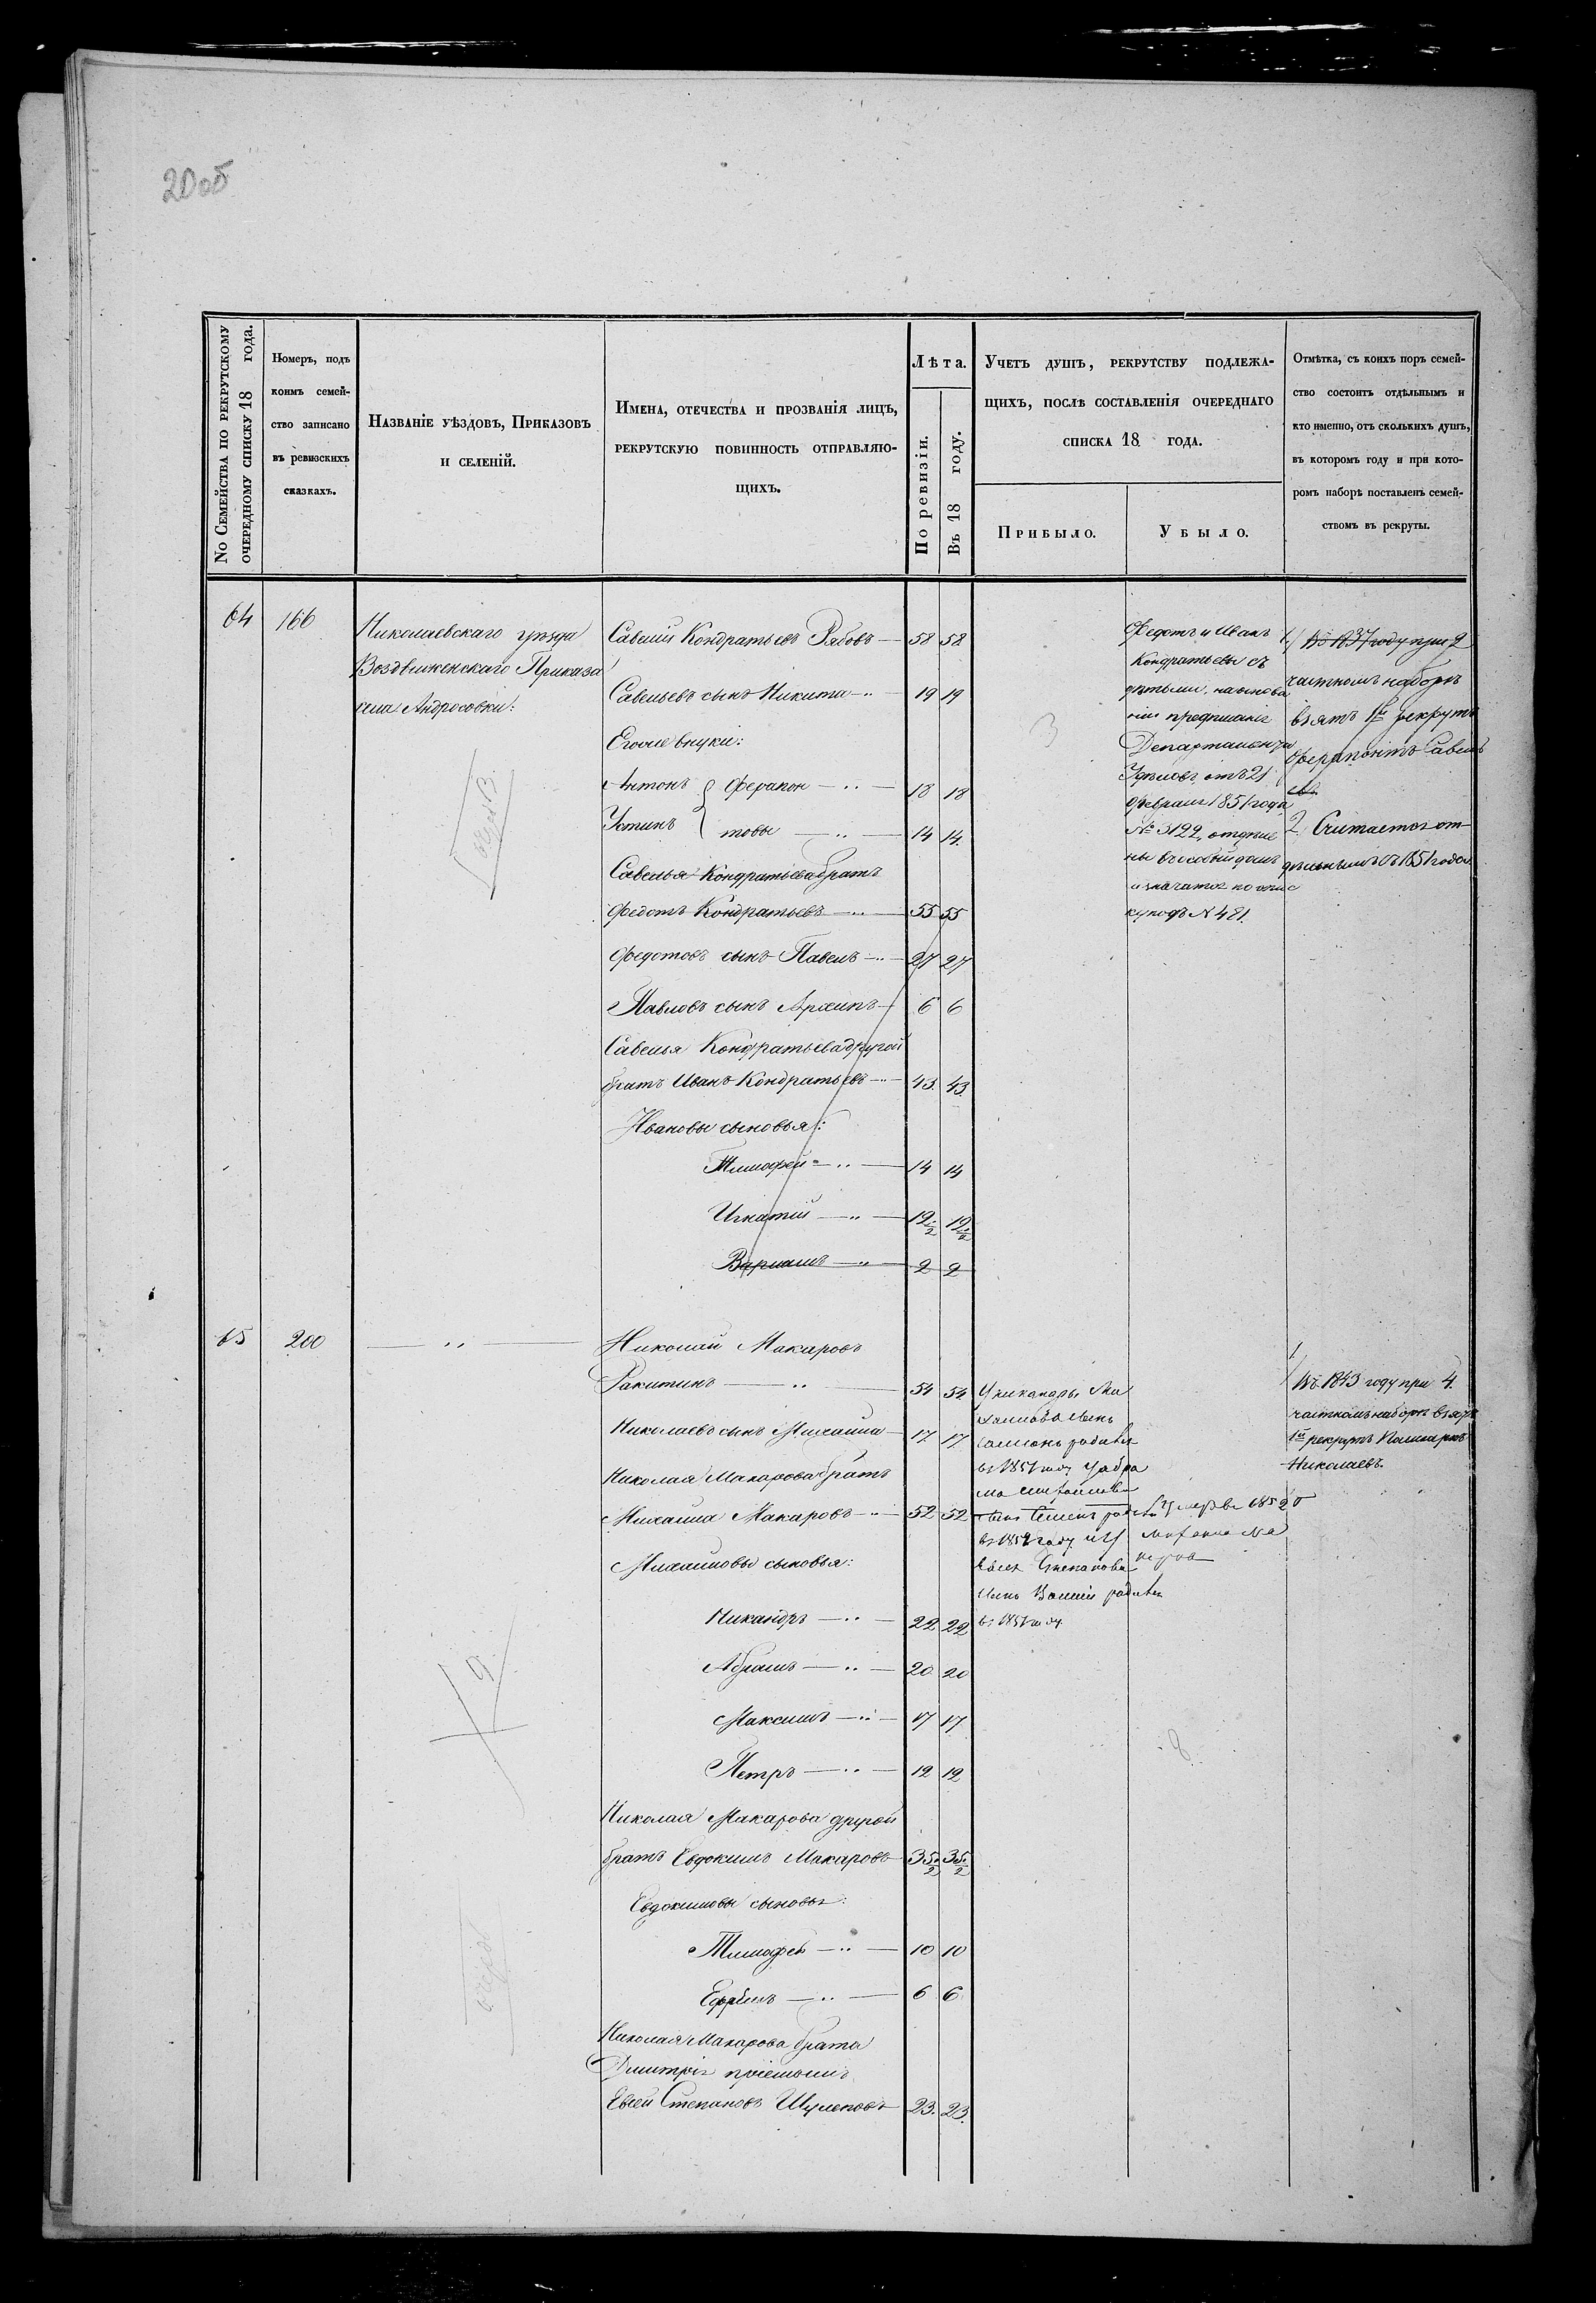 20об
No Семейства по рекрутскому
очередному списку 18 года.
Номеръ, подъ
коимъ семей-
ство записано
въ ревизскихъ
сказкахъ.
Названіе уѣздовъ, Приказовъ
и селеній.
Имена, отечества и прозванія лицъ,
рекрутскую повинность отправляю-
щихъ.
Лѣта.
По ревизіи.
Въ 18 году.
Учетъ душъ, рекрутству подлежа-
щихъ, послѣ составленія очереднаго
списка 18 года.
Прибыло.
Убыло.
Отмѣтка, съ коихъ поръ семей-
ство состоитъ отдѣльнымъ и
кто именно, отъ сколькихъ душъ,
въ которомъ году и при кото-
ромъ наборѣ поставленъ семей-
ствомъ въ рекруты.
64 166
Николаевскаго уѣзда
Воздвиженскаго Приказа
села Андросовки:
Савелій Кондратьевъ Рябовъ 58 58
Савельевъ сынъ Никита 19 19
Его же внуки:
Антонъ Ферапон 18 18
Устинъ товы 14 14
Савелья Кондратьева братъ
Федотъ Кондратьевъ 55 55
Федотовъ сынъ Павелъ 27 27
Павловъ сынъ Архипъ 6 6
Савелья Кондратьева другой
братъ Иванъ Кондратьевъ 43 43
Ивановы сыновья:
Тимофей 14 14
Игнатій 12 1/2 12 1/2
Варламъ 2 2
3
Федотъ и Иванъ
Кондратьевы съ
дѣтьми, на основа
ніи предписанія
Департамента
Удѣловъ отъ 21
февраля 1851 года
№ 3122, отдѣле
ны въ особый домъ
и значатся по
подъ № 481.
1/ Въ 1837 году при 2
частномъ наборѣ
взятъ 1й рекрутъ
Ферапонтъ Савель
евъ
2. Считается от-
дѣльнымъ съ 1851 года
65 200
Николай Макаровъ
Ракитинъ 54 54
Николаевъ сынъ Михайла 17 17
Николая Макарова братъ
Михайла Макаровъ 52 52
Михайловы сыновья:
Никандръ 22 22
Абрамъ 20 20
Максимъ 17 17
Петръ 12 12
Николая Макарова другой
братъ Евдокимъ Макаровъ 35 1/2 35 1/2
Евдокимовы сыновья:
Тимофей 10 10
Ефимъ 6 6
Николая Макарова брата
Дмитрія пріемышъ
Евсей Степановъ 23. 23.
У Никандры Ми
хайлова сынъ
родился
въ 1851 году у Абра
ма Михайлова
сынъ Семенъ родился
въ 1852 году и у
Евсея Степанова
сынъ родился
въ 1851 году
Умеръ въ 1852 г
Михайла Ма
каровъ
8
9
1/ Въ 1843 году при 4.
частномъ наборѣ взятъ
1й рекрутъ
Николаевъ.